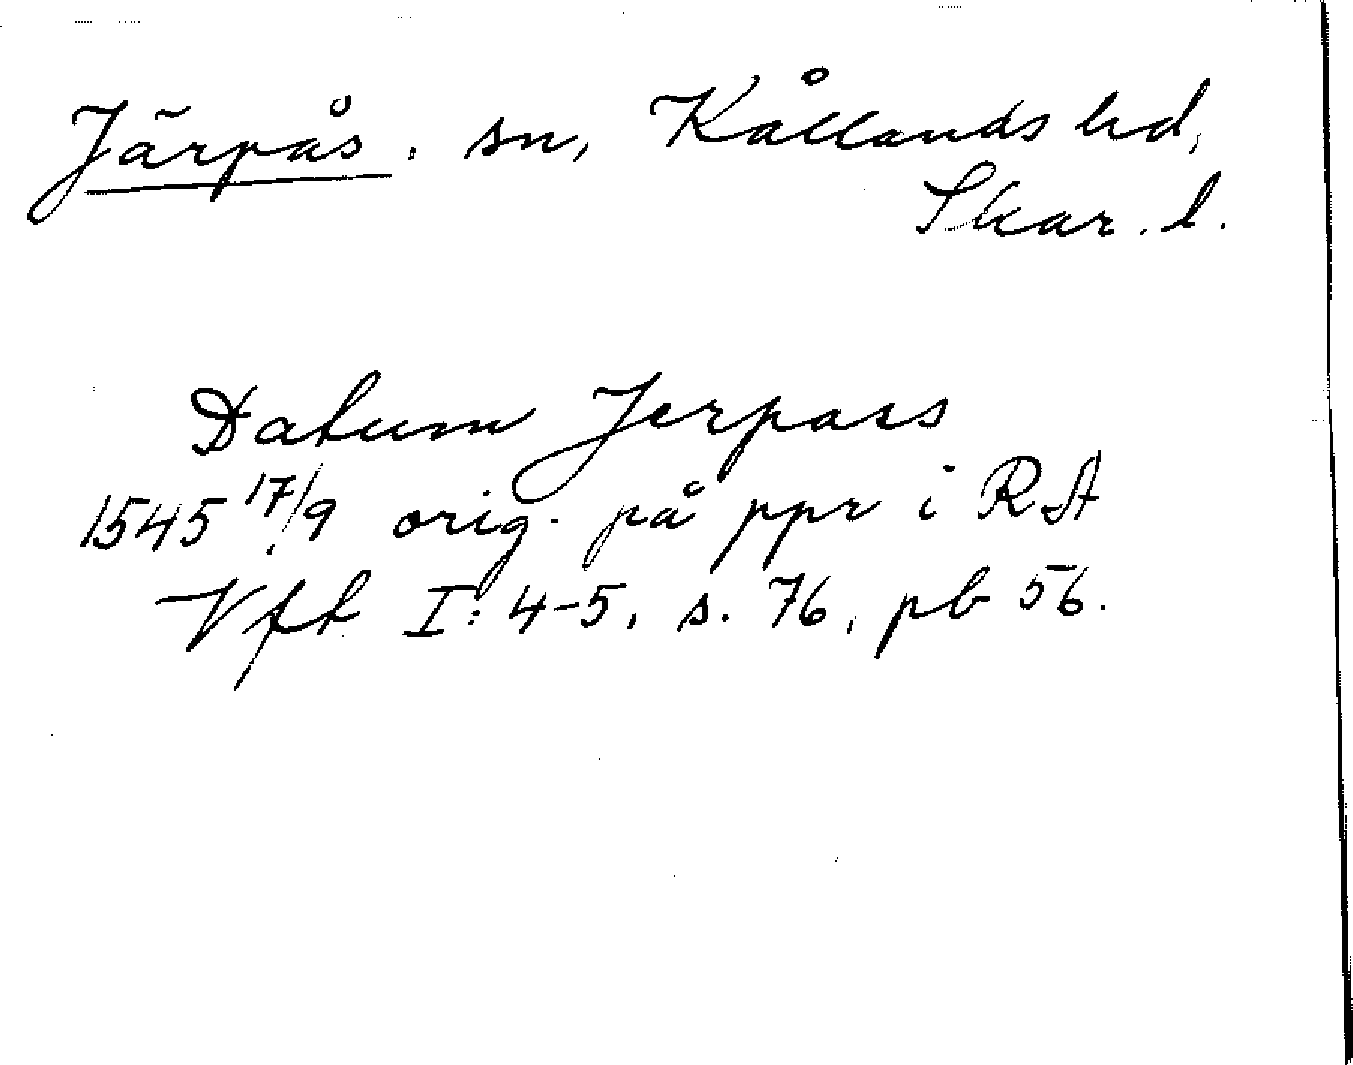 Järpås. sn, Kållands hd,
Skar. l.
Datum Jerpass
1545 17/9 orig. på ppr i RA
Vft I: 4-5, s. 76, pb 56.